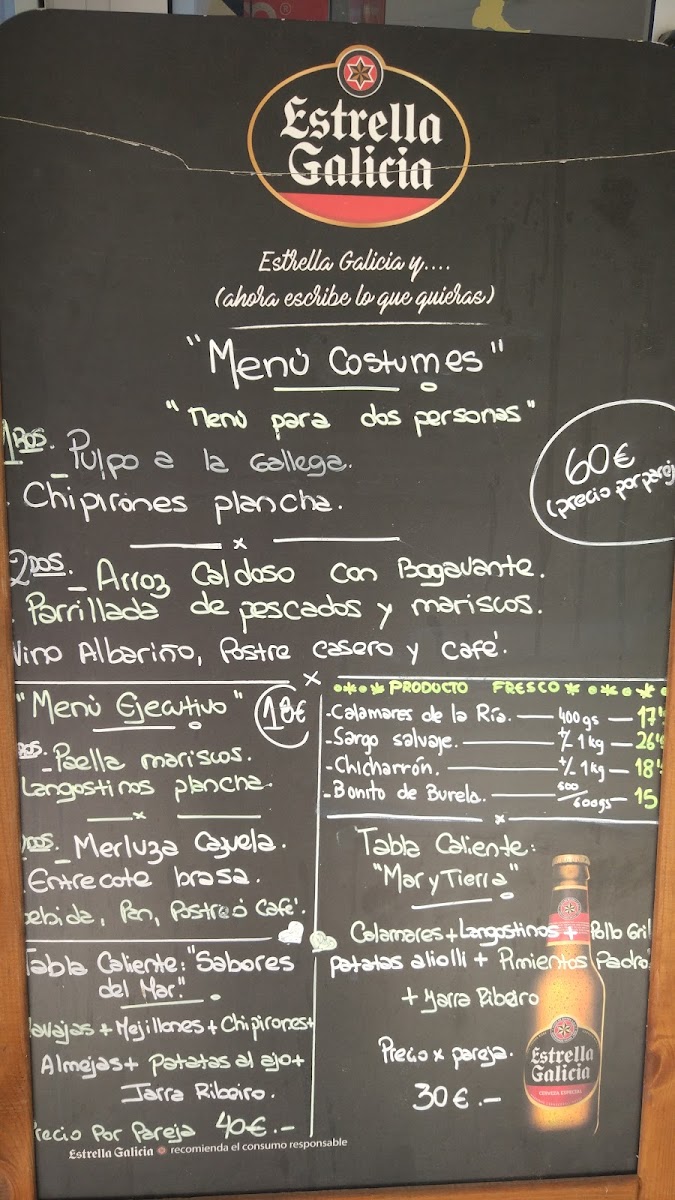 Estrella
Galicia
Estrella Galicia y....
(ahora escribe lo que quieras)
"Menú Costumes"
"Menú para dos personas"
60€
(precio por parej
1ROS. - Pulpo a la Gallega.
Chipirones plancha.
x
2DOS. - Arroz Caldoso con Bogavante.
Parrillada de pescados y mariscos.
Vino Albariño, Postre casero y café.
x
"Menú Ejecutivo" 18€
ROS. - Paella mariscos.
Langostinos plancha.
x
DOS. - Merluza Cazuela.
Entrecote brasa.
bebida, Pan, Postre ó Café.
Tabla Caliente: "Sabores
del Mar."
Navajas + Mejillones + Chipirones +
Almejas + patatas al ajo +
Jarra Ribeiro.
Precio Por Pareja 40€.-
PRODUCTO FRESCO
- Calamares de la Ría. — 400gs — 17
- Sargo salvaje. — +/- 1kg — 26
- Chicharrón. — +/- 1kg — 18
- Bonito de Burela. — 500/600gs — 15
x
Tabla Caliente:
"Mar y Tierra"
Calamares + Langostinos + Pollo Gril
patatas aliolli + Pimientos Padro
+ Jarra Ribeiro
Precio x pareja.
30€.-
Estrella
Galicia
CERVEZA ESPECIAL
Estrella Galicia recomienda el consumo responsable